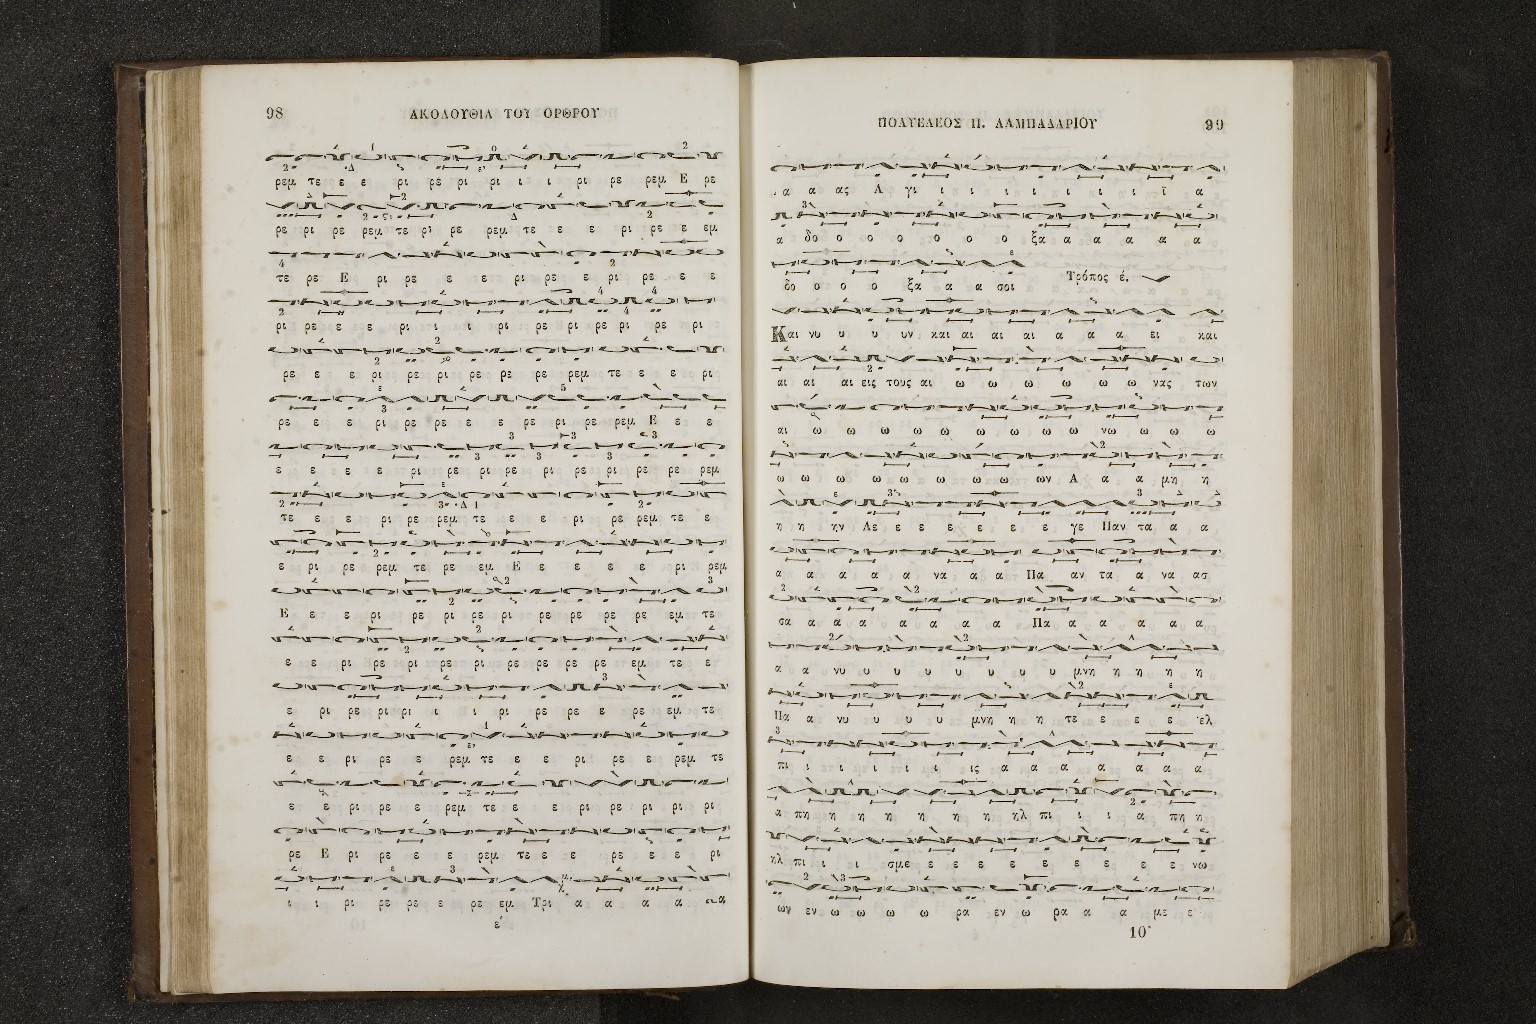 98
ΑΚΟΛΟΥΘΙΑ ΤΟΥ ΟΡΘΡΟΥ
ρεμ τε ε ε ρι ρε ρι ρι ι ι ρι ρε ρεμ Ε ρε
ρε ρι ρε ρεμ τε ρι ρε ρεμ τε ε ε ρι ρε ε εμ
τε ρε Ε ρι ρε ε ε ρι ρε ε ρι ρε ε ε
ρι ρε ε ε ρι ι ι ρι ρε ρι ρε ρι ρε ρι
ρε ε ε ρι ρε ρι ρε ρε ρε ρεμ τε ε ε ρι
ρε ε ε ρι ρε ρε ε ε ρε ρι ρε ρεμ Ε ε ε
ε ε ε ε ρι ρε ρι ρε ρι ρε ρι ρε ρε ρεμ
τε ε ε ρι ρε ρεμ τε ε ε ρι ρε ρεμ τε ε
ε ρι ρε ρεμ τε ρε εμ Ε ε ε ε ε ρι ρεμ
Ε ε ε ρι ρε ρι ρε ρι ρε ρε ρε ρε εμ τε
ε ε ρι ρε ρι ρε ρι ρε ρε ρε ρε εμ τε ε
ε ρι ρε ρι ρι ι ι ρι ρε ρε ε ρε εμ τε
ε ε ρι ρε ε ρεμ τε ε ε ρι ρε ε ρεμ τε
ε ε ρι ρε ε ρεμ τε ε ε ρι ρε ρι ρι ρι
ρε Ε ρι ρε ε ε ρεμ τε ε ε ρε ε ε ρι
ι ι ρι ρε ρε ε ρε εμ Τρι α α α α
ε΄
99
ΠΟΛΥΕΛΕΟΣ Π. ΛΑΜΠΑΔΑΡΙΟΥ
α α ας Α γι ι ι ι ι ι ι ι ϊ α
α δο ο ο ο ο ο ο ξα α α α α α
δο ο ο ο ξα α α σοι Τρόπος έ.
Και νυ υ υ υν και αι αι αι α α α ει και
αι αι αι εις τους αι ω ω ω ω ω ω νας των
αι ω ω ω ω ω ω ω ω νω ω ω ω
ω ω ω ω ω ω ω ω ων Α α α μη η
η η ην Λε ε ε ε ε ε ε γε Παν τα α α
α α α α α να α α Πα αν τα α να ασ
σα α α α α α α α Πα α α α α α
α α νυ υ υ υ υ υ υ υ μνη η η η η
Πα α νυ υ υ υ μνη η η τε ε ε ε ελ
πι ι ι ι ι ι ις α α α α α α α α
α πη η η η η η η ηλ πι ι ι α πη η
ηλ πι ι ι σμε ε ε ε ε ε ε ε ε ε νω
ων εν ω ω ω ω ρα εν ω ρα α α με ε
10*